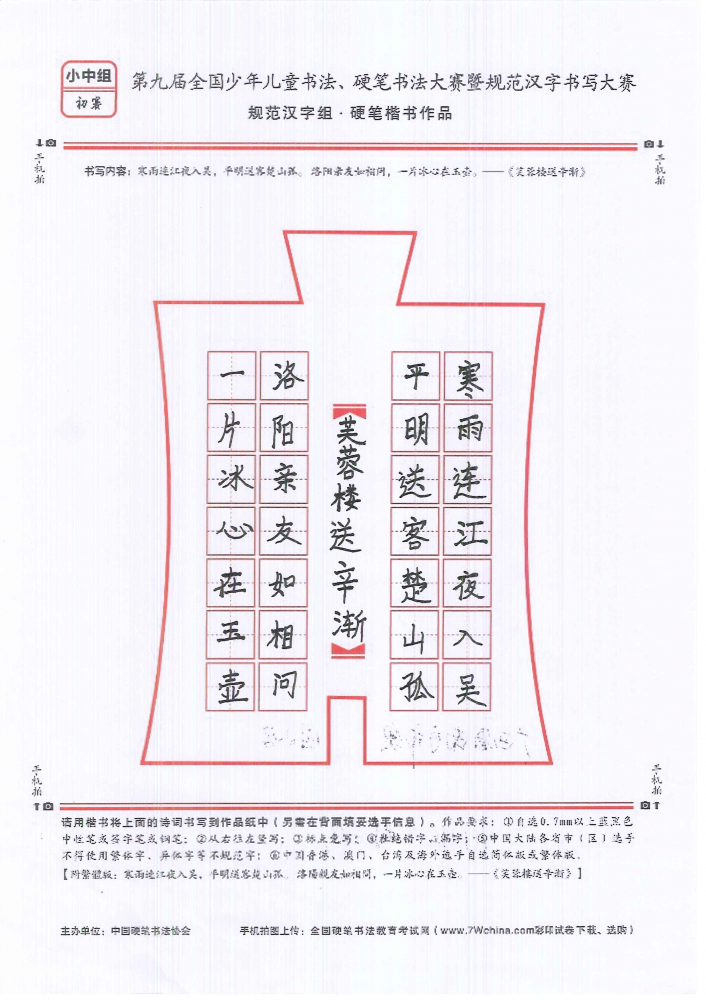 小中组
初赛
第九届全国少年儿童书法、硬笔书法大赛暨规范汉字书写大赛
规范汉字组·硬笔楷书作品
手机拍
手机拍
书写内容：寒雨连江夜入吴，平明送客楚山孤。洛阳亲友如相问，一片冰心在玉壶。——《芙蓉楼送辛渐》
寒雨连江夜入吴
平明送客楚山孤
芙蓉楼送辛渐
洛阳亲友如相问
一片冰心在玉壶
手机拍
手机拍
请用楷书将上面的诗词书写到作品纸中（另需在背面填妥选手信息）。作品要求：①自选0.7mm以上蓝黑色
中性笔或签字笔或钢笔；②从右往左竖写；③标点免写；④杜绝错字、漏字；⑤中国大陆各省市（区）选手
不得使用繁体字、异体字等不规范字；⑥中国香港、澳门、台湾及海外选手自选简体版或繁体版。
【附繁體版：寒雨連江夜入吴，平明送客楚山孤。洛陽親友如相問，一片冰心在玉壺。——《芙蓉樓送辛漸》】
主办单位：中国硬笔书法协会
手机拍图上传：全国硬笔书法教育考试网（www.7Wchina.com彩印试卷下载、选购）